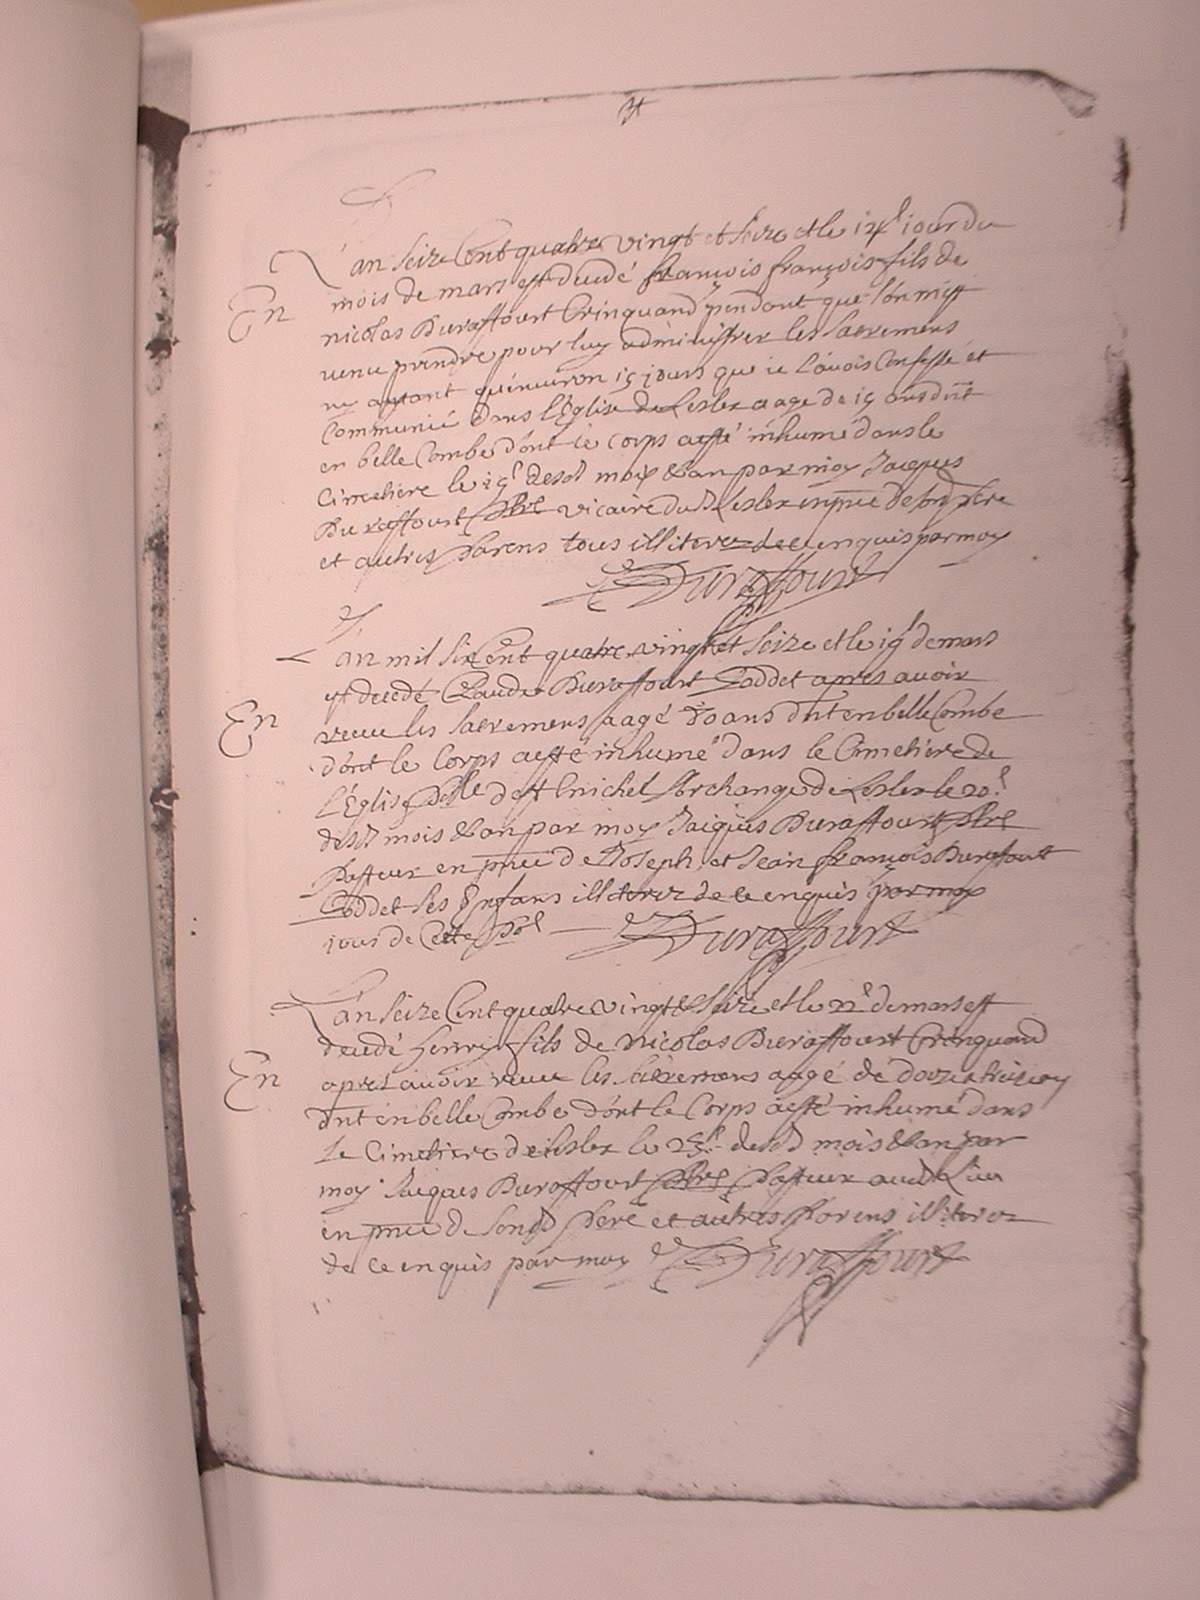 L'an seize Cent quatre vingt et seize et le 14e iour du
mois de mars est decedé françois françois fils de
nicolas Duraffourt Crinquand pendant que l'on m'est
venu prendre pour luy administrer les sacremens
ny ayant qu'enuiron 15 jours que ie l'auois Confessé et
Communié dans l'Eglise de Leslex aagé de 15 ans dnt
en belle Combe dont le corps a esté inhumé dans le
Cimetiere le 15e desd mois & an par moy Jacques
Duraffourt pbre vicaire dud Leslex en pnce de sond pere
et autres Parens tous illiterez de ce enquis par moy
Duraffourt
L'an mil six Cent quatre vingt et seize et le 19e de mars
En
est decedé Claude Duraffourt Caddet apres auoir
receu les sacremens aagé 80 ans dnt en belle Combe
dont le Corps a esté inhumé dans le Cimetiere de
l'Eglise de st Michel Archange de Leslex le 20e
desd mois & an par moy Jacques Duraffourt pbre
Pasteur en pnce de Joseph et Jean françois Duraffourt
Caddet ses Enfans illiterez de ce enquis par moy
Duraffourt
L'an seize Cent quatre vingt & seize et le 22e de mars est
decedé henry fils de nicolas Duraffourt Crinquand
En
apres auoir receu les sacremens aagé de
dnt en belle Combe dont le Corps a esté inhumé dans
Le Cimetiere de Leslex le 23e desd mois & an par
moy Jacques Duraffourt pbre Pasteur aud Lieu
en pnce de sond Pere et autres Parens illiterez
de ce enquis par moy Duraffourt